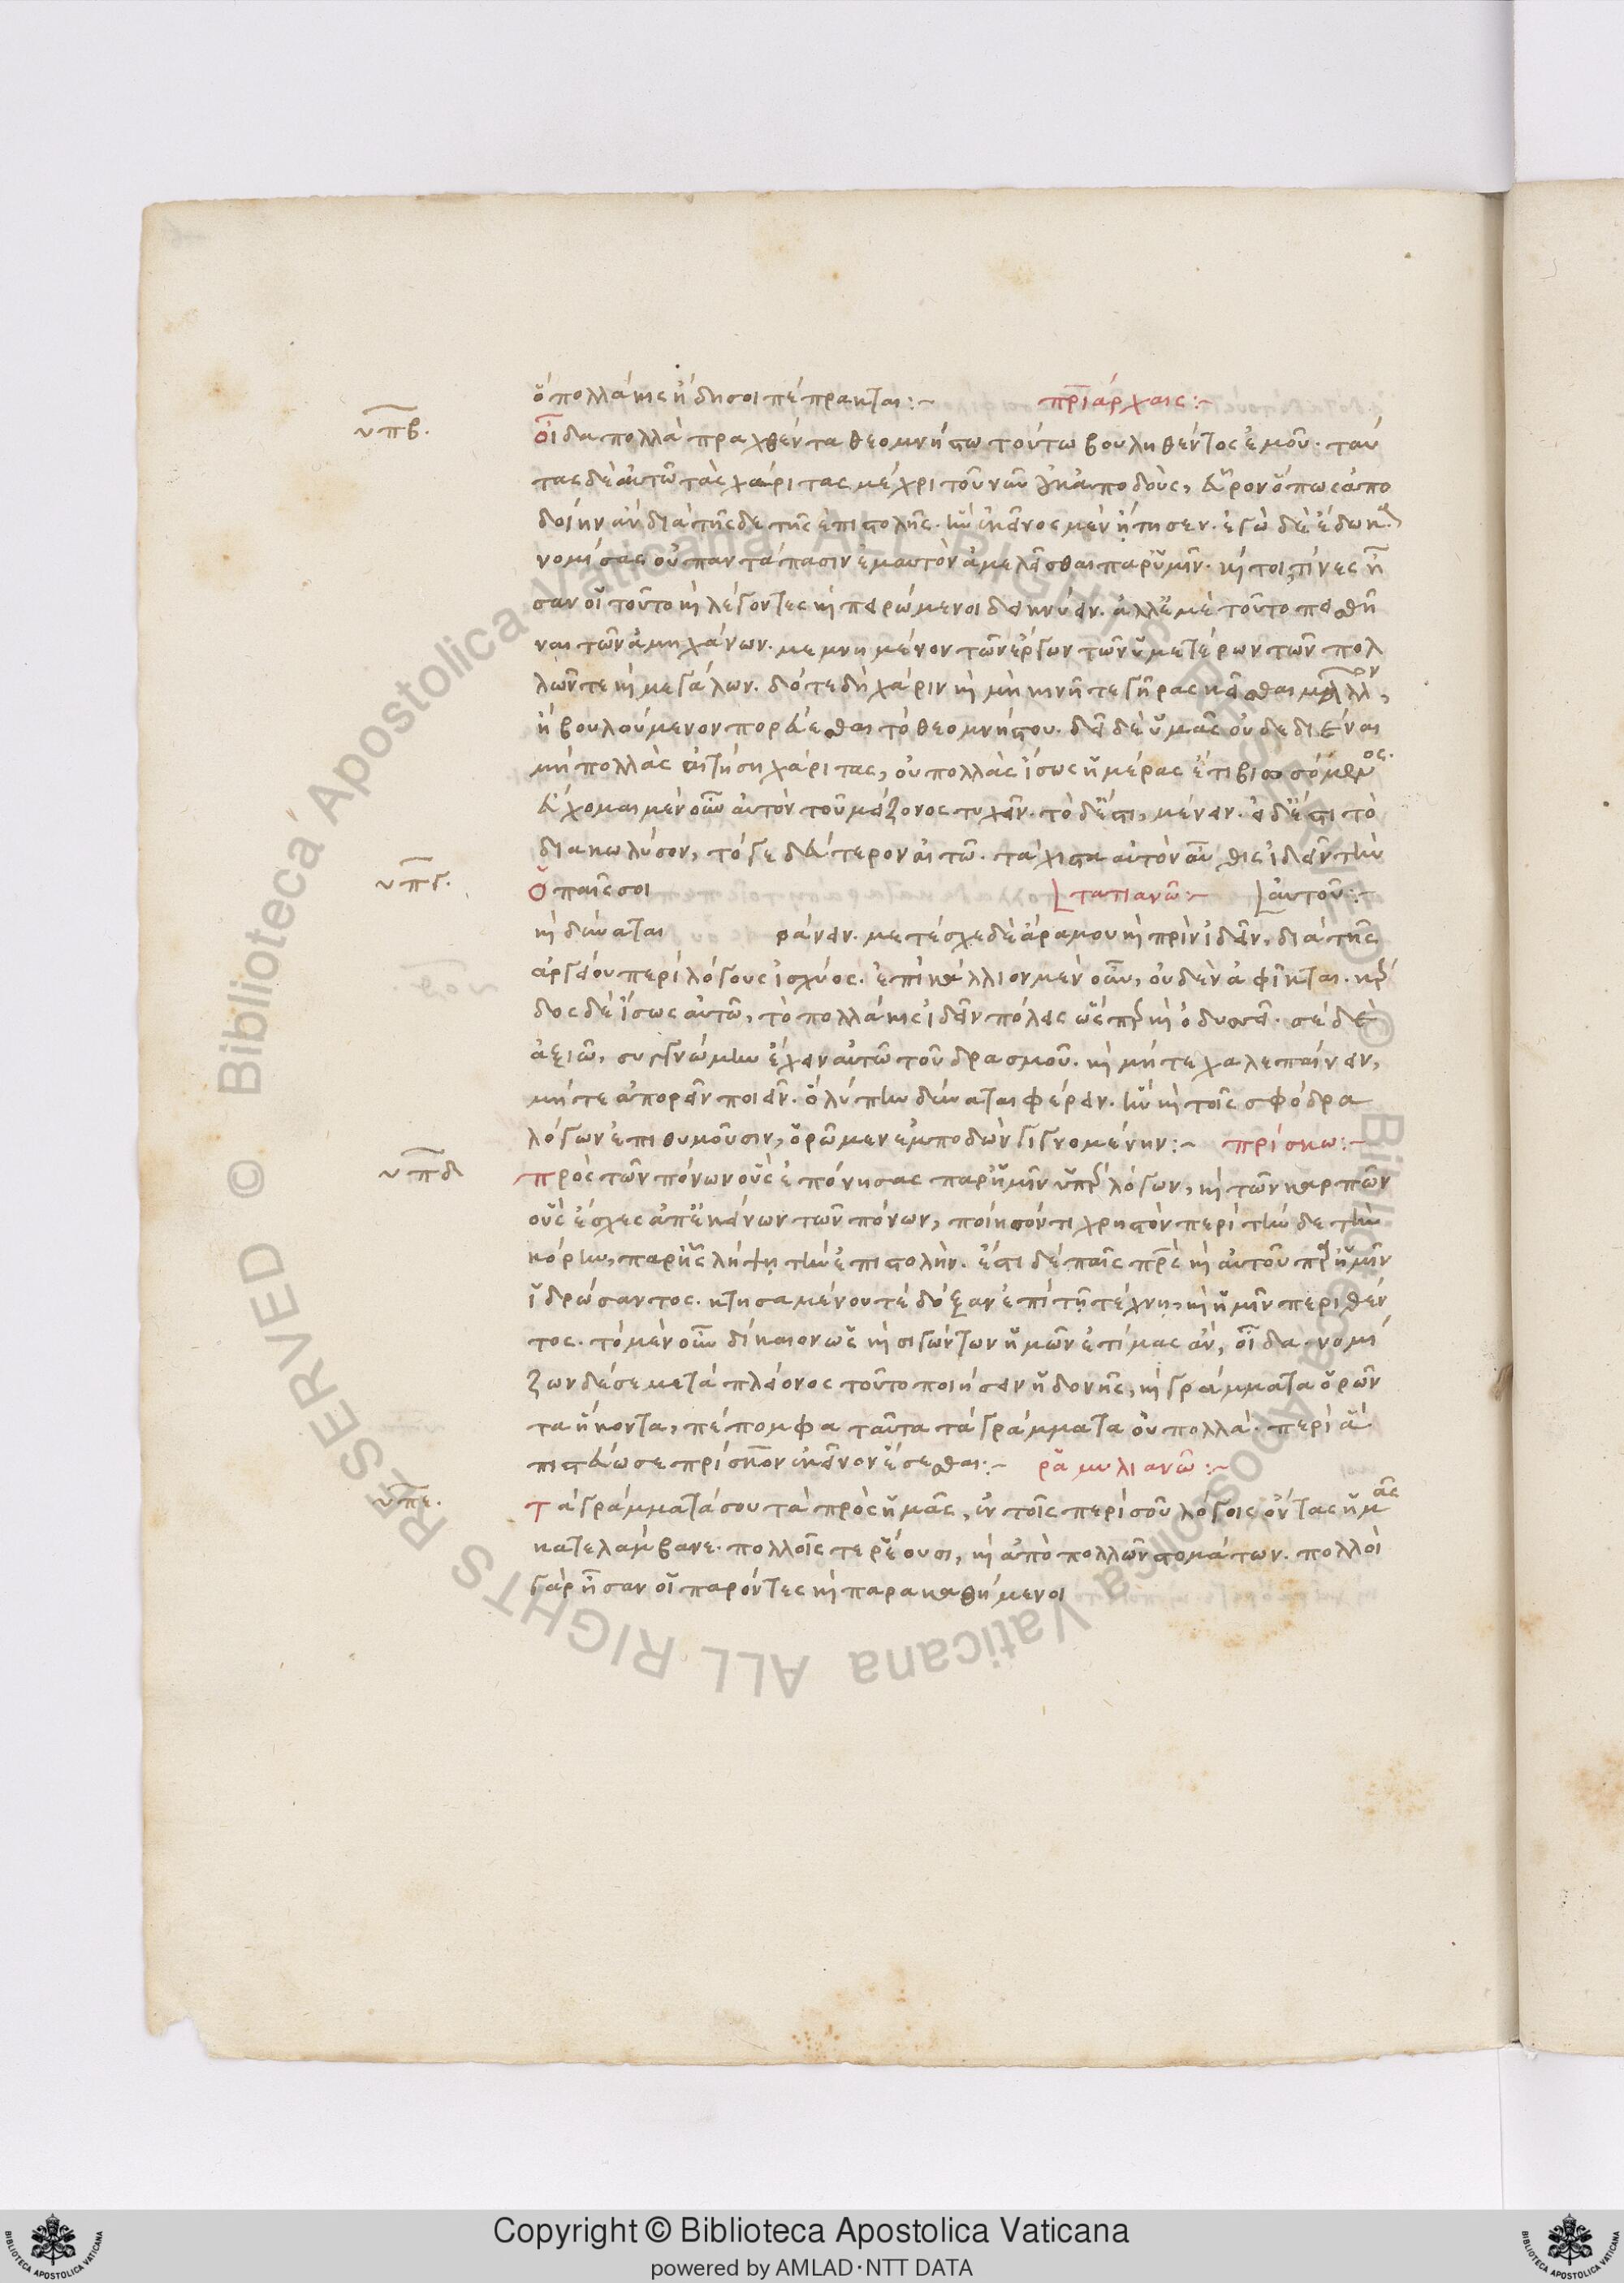 ὃ πολλάκις ἤδη σοι πέπρακται:~ πριάρχαις:~
υπβ.
Οἶδα πολλὰ πραχθέντα θεομνήστω τούτω βουληθέντος ἐμοῦ. ταύ
τας δὲ αὐτῶ τὰς χάριτας μέχρι τοῦ νῦν οὐκ ἀποδοὺς, εὗρον ὅπως ἀπο
δοίην ἂν διὰ τῆσδε τῆς ἐπιστολῆς. ἣν ἐκεῖνος μὲν ἤτησεν. ἐγὼ δὲ ἔδωκα
νομίσας οὐ παντάπασιν ἐμαυτὸν ἀμελεῖσθαι παρ' ὑμῖν. καί τοι τινες ἦ
σαν οἳ τοῦτο καὶ λέγοντες καὶ πειρώμενοι δεικνύειν. ἀλλ' ἐμὲ τοῦτο πεισθῆ
ναι τῶν ἀμηχάνων. μεμνημένον τῶν ἔργων τῶν ὑμετέρων τῶν πολ
λῶν τε καὶ μεγάλων. δότε δὴ χάριν καὶ μὴ κινῆτε γῆρας κεῖσθαι μᾶλλον,
ἢ βουλούμενον πορεύεσθαι τὸ θεομνήστου. δεῖ δὲ ὑμᾶς οὐ δεδιέναι
μὴ πολλὰς αἰτήση χάριτας, οὐ πολλὰς ἴσως ἡμέρας ἔτι βιωσόμενος.
εὔχομαι μὲν οὖν αὐτὸν τοῦ μείζονος τυχεῖν. τὸ δ' ἔστι, μένειν. εἰ δ' ἔστι τὸ
διακωλύσον, τό γε δεύτερον αἰτῶ. τάχιστα αὐτὸν αὖθις ἰδεῖν τὴν
υπγ.
Ὁ παῖς σοι τατιανῶ:~ αὐτοῦ:~
καὶ δύναται ράνειν. μετέσχε δὲ ἄρα μου καὶ πρὶν ἰδεῖν, διὰ τῆς
ἀργείου περὶ λόγους ἰσχύος. ἐπὶ κάλλιον μὲν οὖν, οὐδὲν ἀφῖκται. κέρ
δος δὲ ἴσως αὐτῶ, τὸ πολλάκις ἰδεῖν πόλεις ὥσπερ καὶ ὀδυσσεῖ. σὲ δὲ
ἀξιῶ, συγγνώμην ἔχειν αὐτῶ τοῦ δρασμοῦ. καὶ μήτε χαλεπαίνειν,
μήτε ἀπορεῖν ποιεῖν. ὃ λύπην δύναται φέρειν. ἣν καὶ τοῖς σφόδρα
λόγων ἐπιθυμοῦσιν, ὁρῶμεν ἐμποδὼν γιγνομένην:~ πρίσκω:~
υπδ
Πρὸς τῶν πόνων οὓς ἐπόνησας παρ' ἡμῖν ὑπὲρ λόγων, καὶ τῶν καρπῶν
οὓς ἔσχες ἀπ' ἐκείνων τῶν πόνων, ποίησόν τι χρηστὸν περὶ τήνδε τὴν
κόρην, παρ' ἧς λήψη τὴν ἐπιστολήν. ἔστι δὲ παῖς πρὸς καὶ αὐτοῦ παρ' ἡμῖν
ἱδρώσαντος. κτησαμένου τὲ δόξαν ἐπὶ τῆ τέχνη, καὶ ἡμῖν περιθέν
τος. τὸ μὲν οὖν δίκαιον ὡς καὶ σιγώντων ἡμῶν ἐτίμας ἂν, οἶδα. νομί
ζων δέ σε μετὰ πλείονος τοῦτο ποιήσειν ἡδονῆς, καὶ γράμματα ὁρῶν
τα ἥκοντα, πέπομφα ταῦτα τὰ γράμματα οὐ πολλά. περὶ ἃ
πιστεύω σε πρίσκον ἐκεῖνον ἔσεσθαι:~ ῥωμυλιανῶ:~
υπε.
Τὰ γράμματά σου τὰ πρὸς ἡμᾶς, ἐν τοῖς περὶ σοῦ λόγοις ὄντας ἡμᾶς
κατελάμβανε. πολλοῖς τε ῥέουσι, καὶ ἀπὸ πολλῶν στομάτων. πολλοὶ
γὰρ ἦσαν οἱ παρόντες καὶ παρακαθήμενοι
© Biblioteca Apostolica Vaticana ALL RIGHTS RESERVED
Copyright © Biblioteca Apostolica Vaticana
powered by AMLAD·NTT DATA
BIBLIOTECA APOSTOLICA VATICANA
BIBLIOTECA APOSTOLICA VATICANA